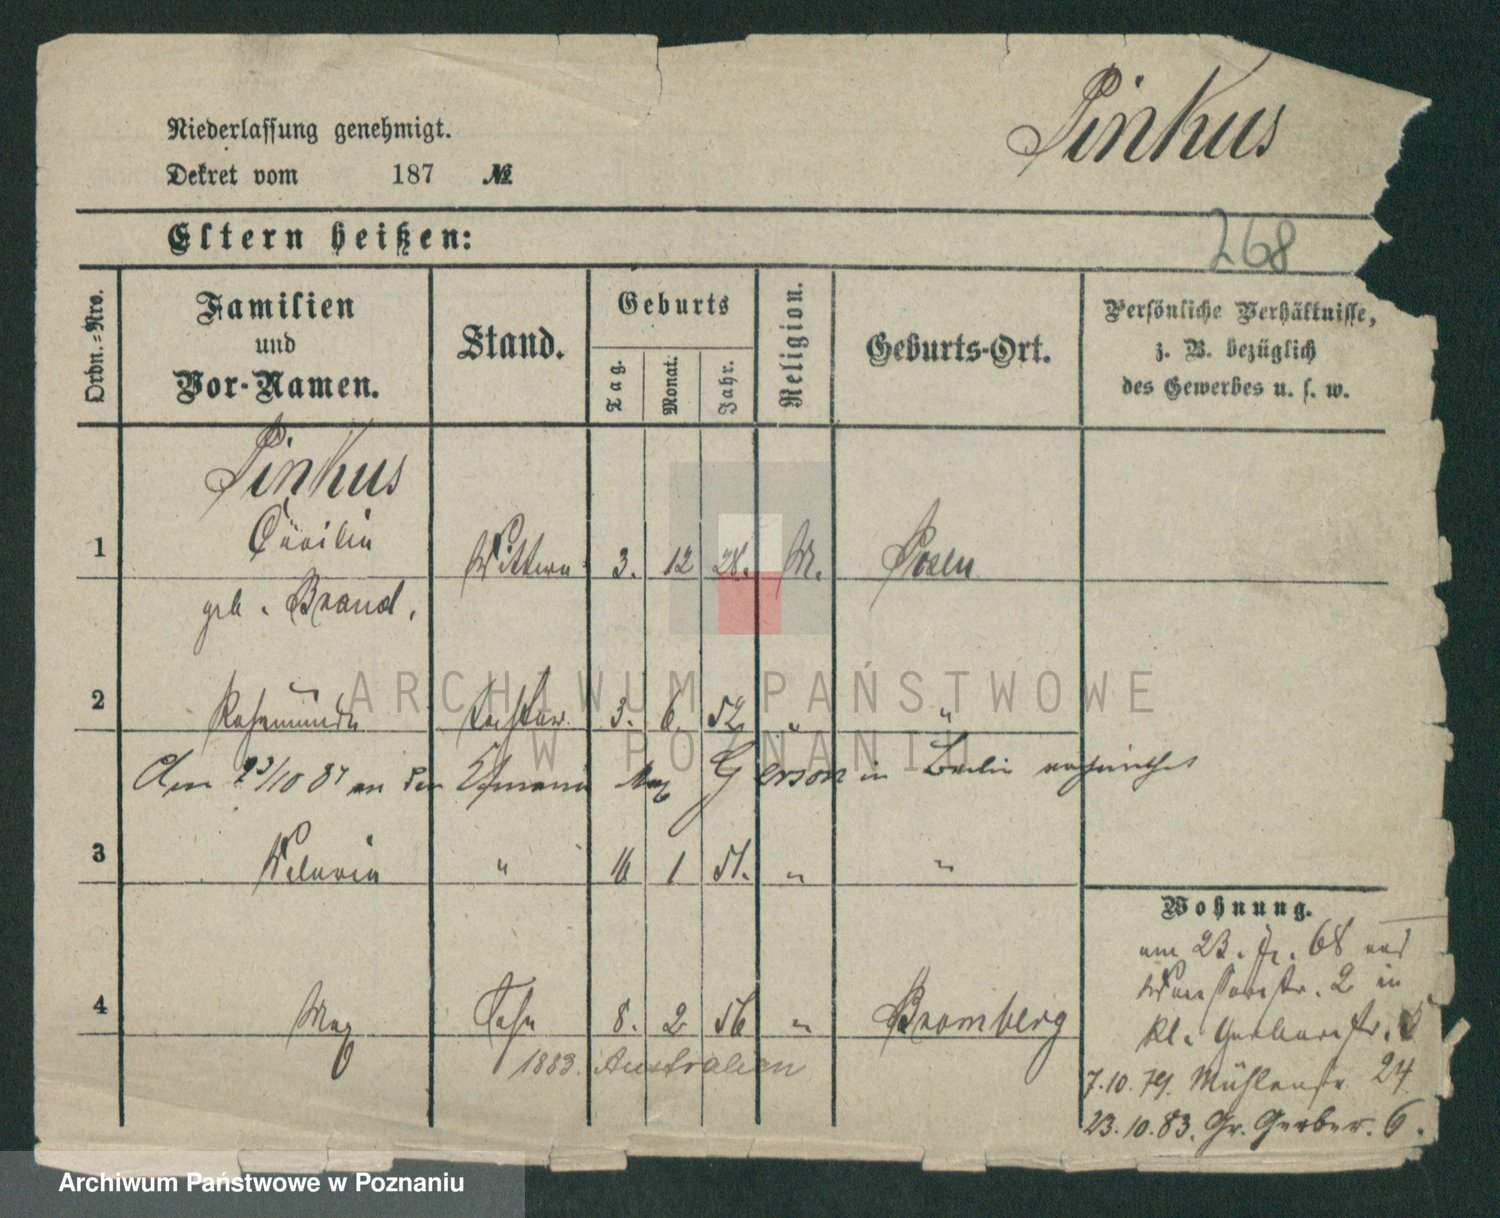 Pinkus
Niederlassung genehmigt.
Dekret vom 187 №
Eltern heißen:
268
Ordn.-Nro.
Familien
und
Vor-Namen.
Stand.
Geburts
Tag.
Monat.
Jahr.
Religion.
Geburts-Ort.
Persönliche Verhältnisse,
z. B. bezüglich
des Gewerbes u. s. w.
Pinkus
1 Cäcilie Wittwe 3. 12 28. M. Posen
geb. Brand.
2 Rosamunde Tochter 3. 6. 52 " "
Am 23/10 87 an den Ehmann Max Gerson in Berlin verheirathet
3 Valeria " 16 1 51. " "
Wohnung.
am 23. 68
2 in
kl. Gerberstr.
4 Max Sohn 8. 2 56 " Bromberg
1883. Australien
7.10.79. Mühlenstr 24
23.10.83. Gr. Gerber. 6.
ARCHIWUM PAŃSTWOWE
W POZNANIU
Archiwum Państwowe w Poznaniu